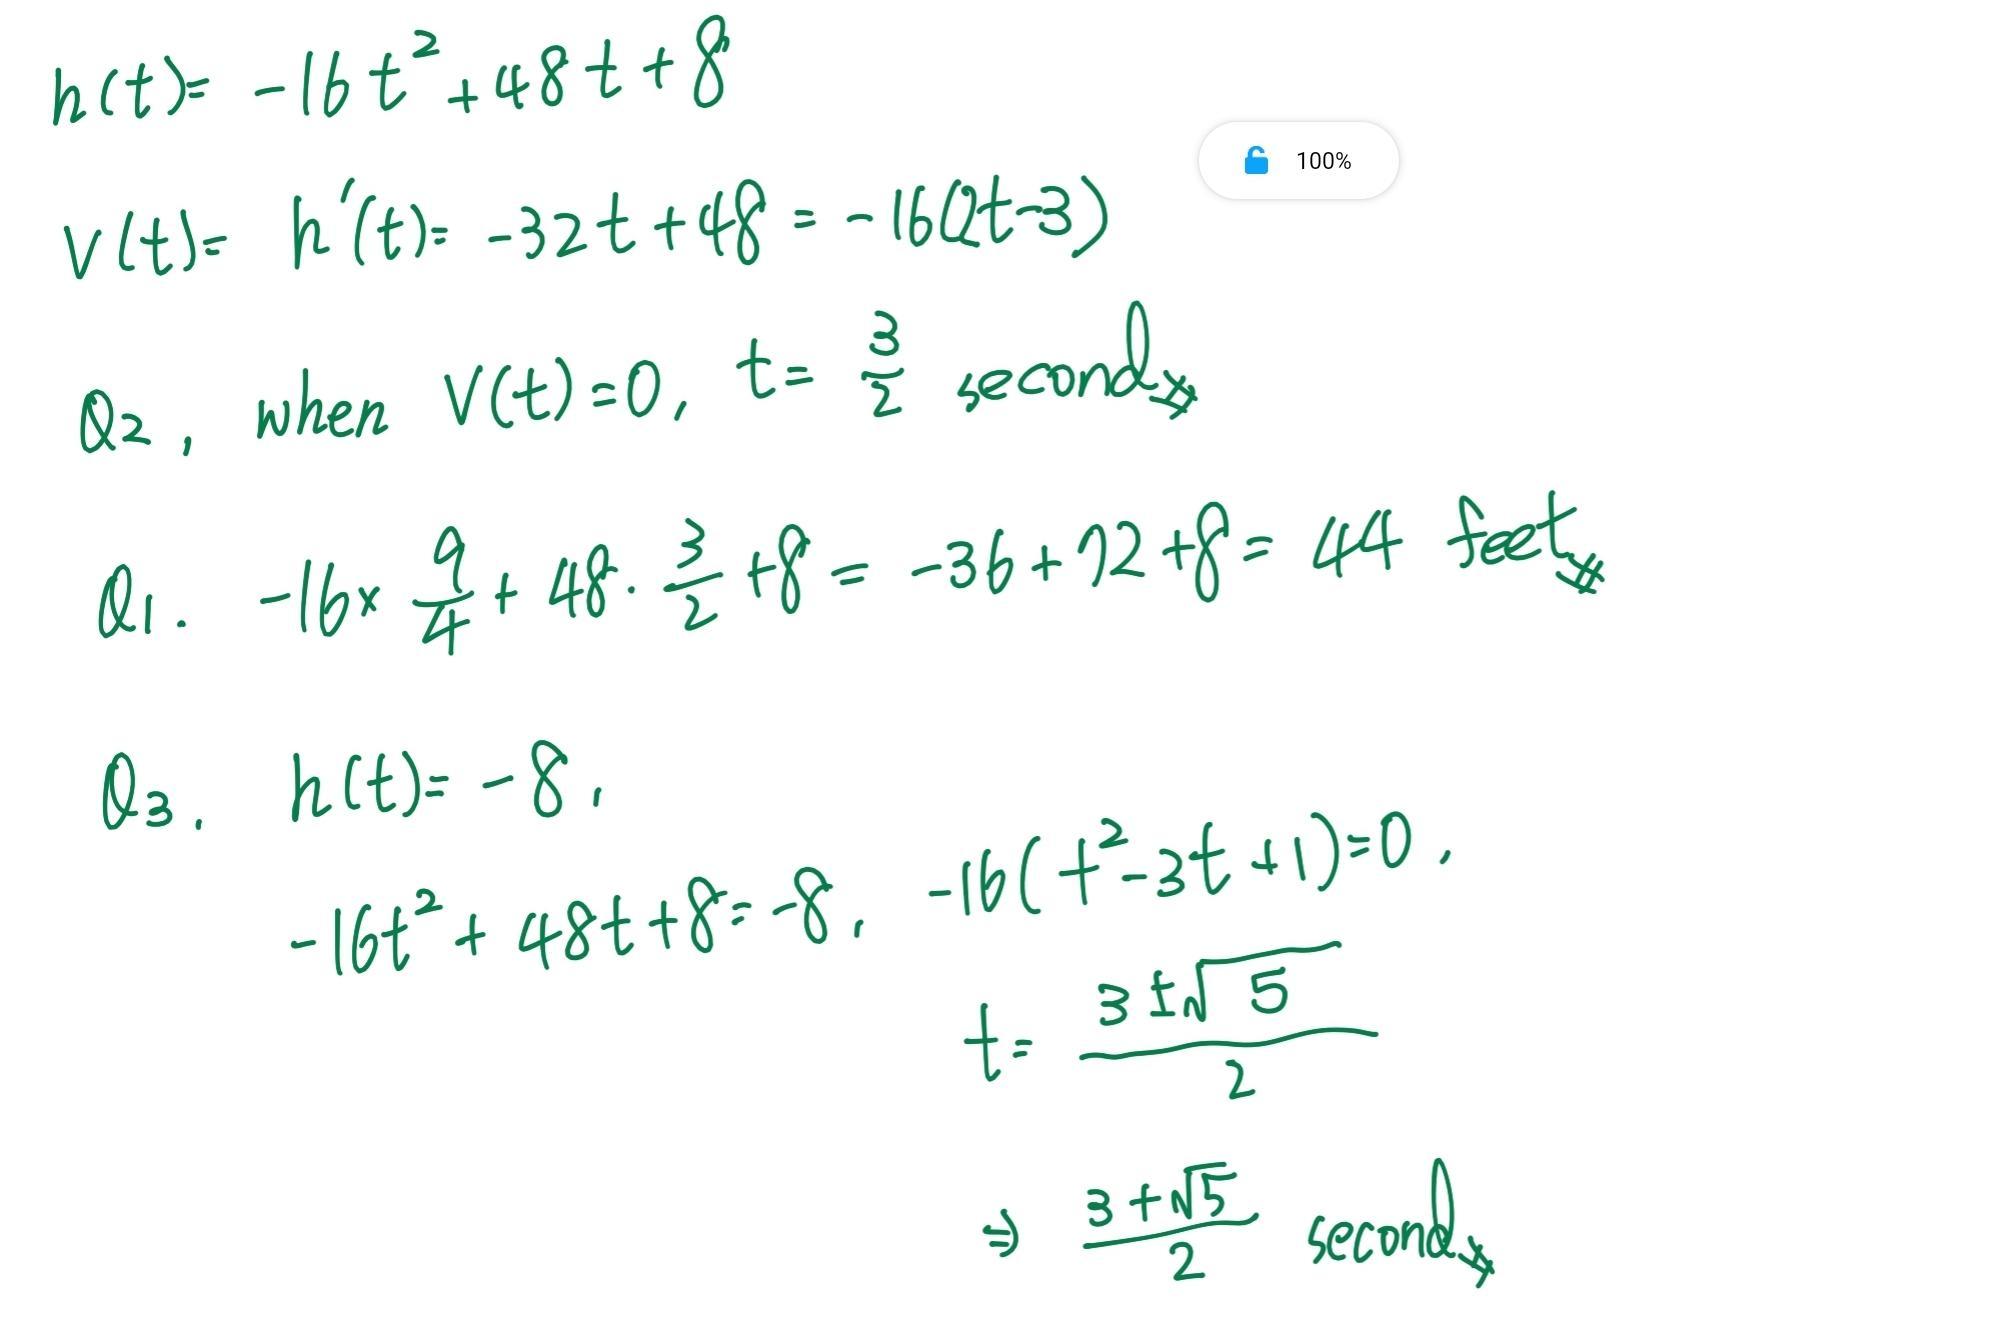 h(t)= -16t²+48t+8
100%
V(t)= h'(t)= -32t+48 = -16(2t-3)
Q2, when V(t)=0, t= 3/2 second
Q1. -16× 9/4 + 48· 3/2 +8 = -36+72+8 = 44 feet
Q3. h(t)= -8,
-16t²+48t+8= -8, -16(t²-3t+1)=0,
t= (3±√5)/2
⇒ (3+√5)/2 second